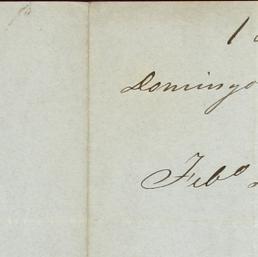 1
Domingo
Febº